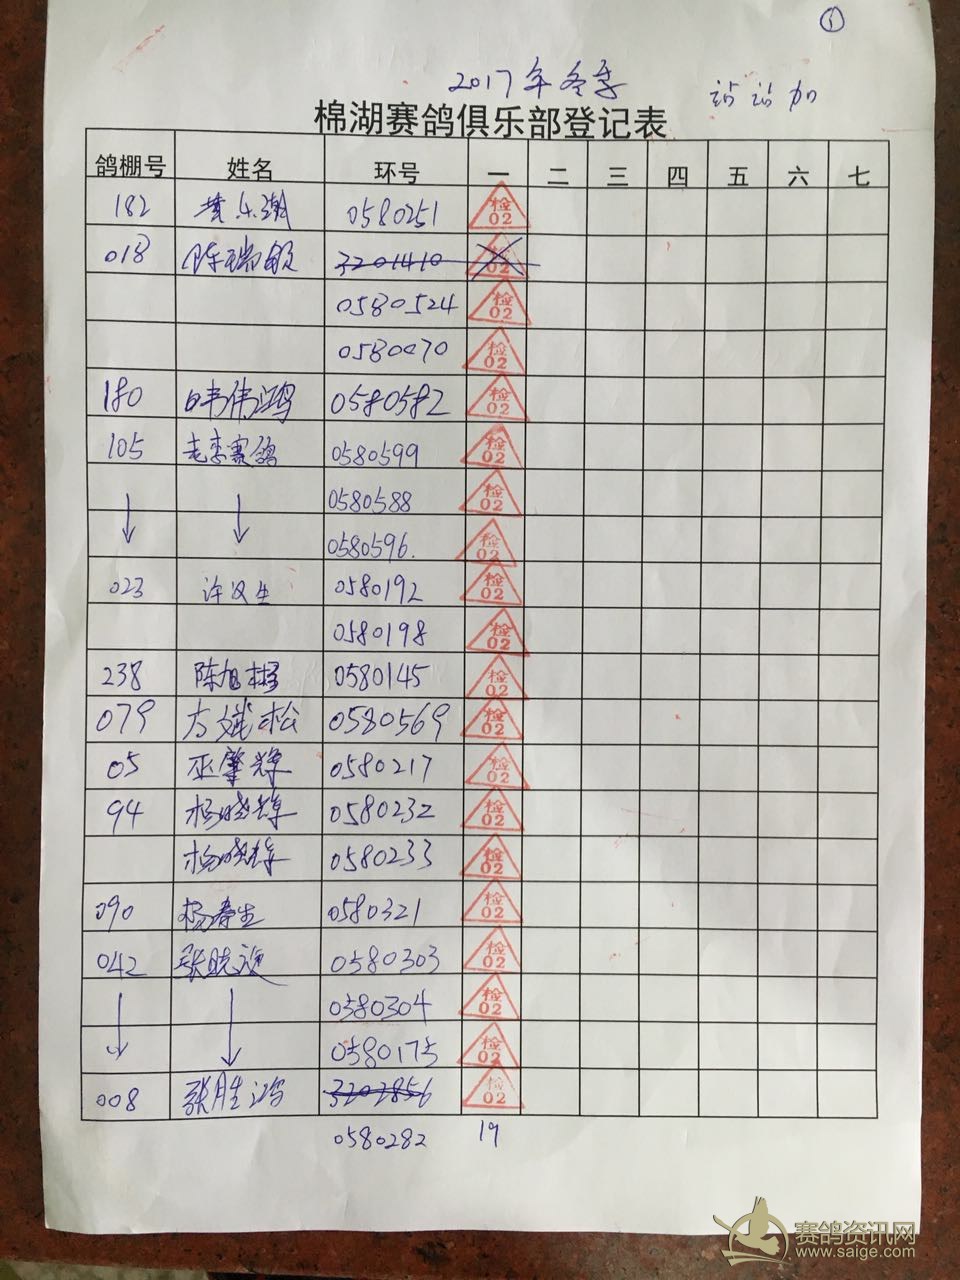 ①
2017年冬季
站站加
棉湖赛鸽俱乐部登记表
鸽棚号 姓名 环号 一 二 三 四 五 六 七
182 黄 0580251 检02
018 陈瑞 3201410 检02
0580524 检02
0580070 检02
180 伟鸿 0580582 检02
105 老李赛鸽 0580599 检02
0580588 检02
0580596. 检02
023 许汉生 0580192 检02
0580198 检02
238 陈旭彬 0580145 检02
079 方斌松 0580569 检02
05 巫肇辉 0580217 检02
94 杨晓辉 0580232 检02
杨晓辉 0580233 检02
090 杨春生 0580321 检02
042 张晓 0580303 检02
0580304 检02
0580175 检02
008 张胜鸿 3202856 检02
0580282 19
赛鸽资讯网
www.saige.com